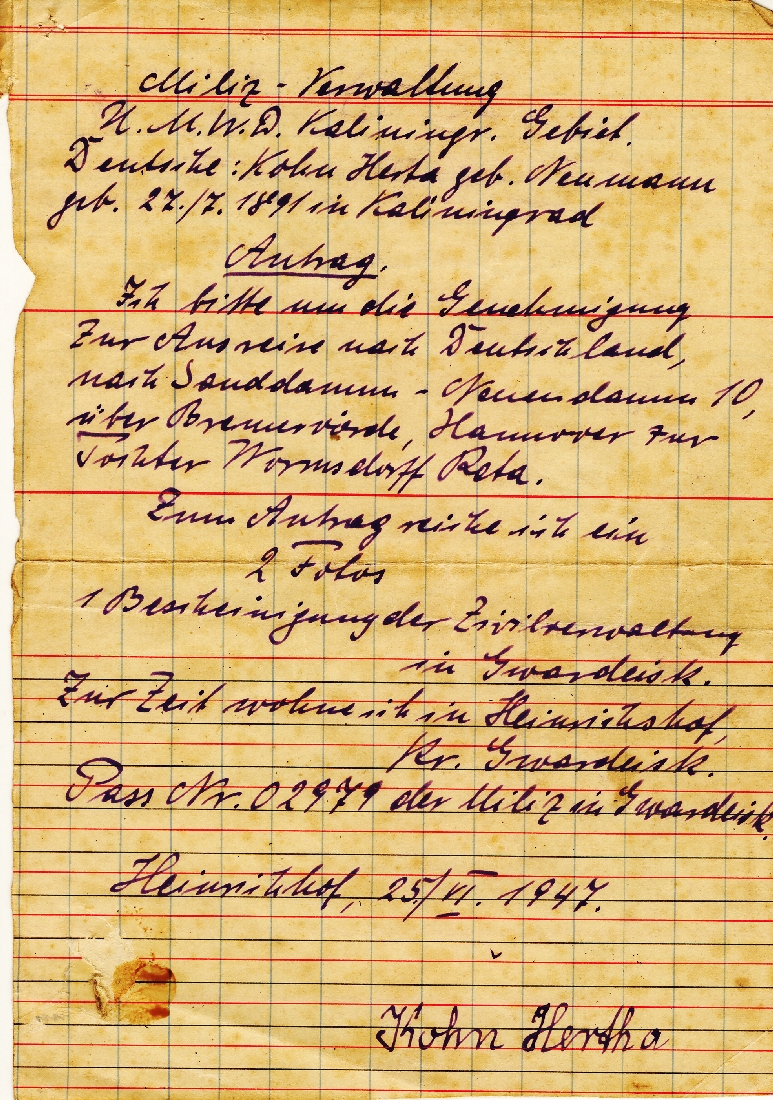 Miliz - Verwaltung
N. M. W. D. Kaliningr. Gebiet.
Deutsche: Kohn Herta geb. Neumann
geb. 27./7. 1891 in Kaliningrad
Antrag.
Ich bitte um die Genehmigung
zur Ausreise nach Deutschland,
nach Sanddamm - Neuendamm 10,
über Bremervörde, Hannover zur
Tochter Wormsdorff Reta.
Zum Antrag reiche ich ein
2 Fotos
1 Bescheinigung der Zivilverwaltung
in Gwardeisk.
Zur Zeit wohne ich in Heinrichshof,
Kr. Gwardeisk.
Pass Nr. 02979 der Miliz in Gwardeisk.
Heinrichhof, 25./VI. 1947.
Kohn Hertha